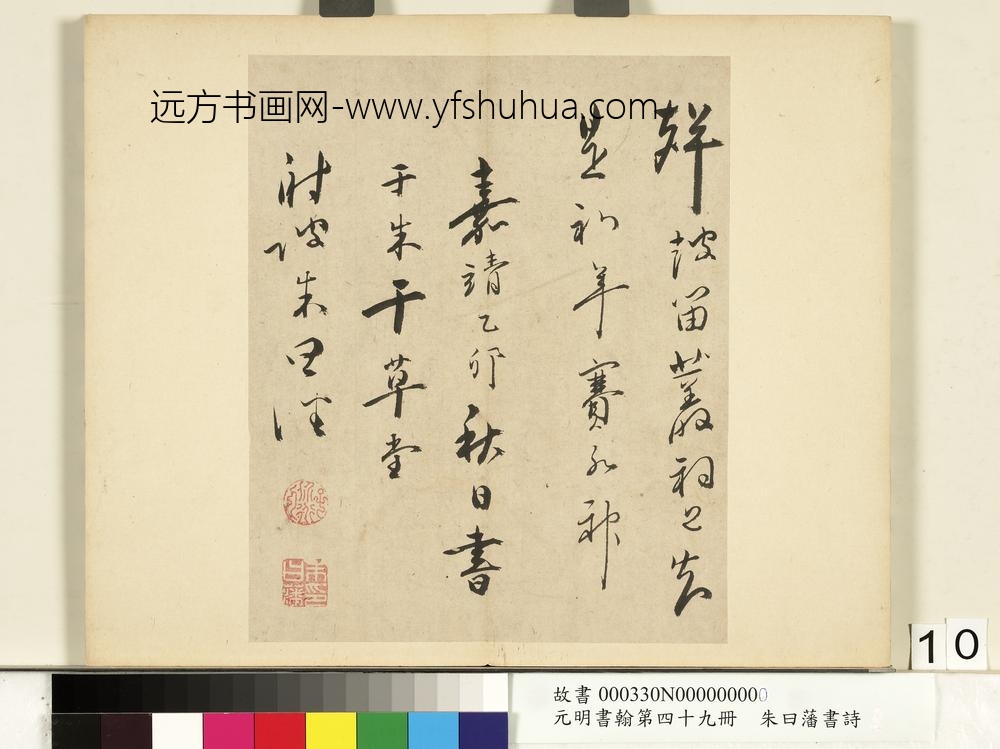 远方书画网-www.yfshuhua.com
笛叢祠上
是年賽水神
嘉靖乙卯秋日書
于朱干草堂
射陂朱曰藩
10
故書 000330N000000000
元明書翰第四十九冊 朱曰藩書詩